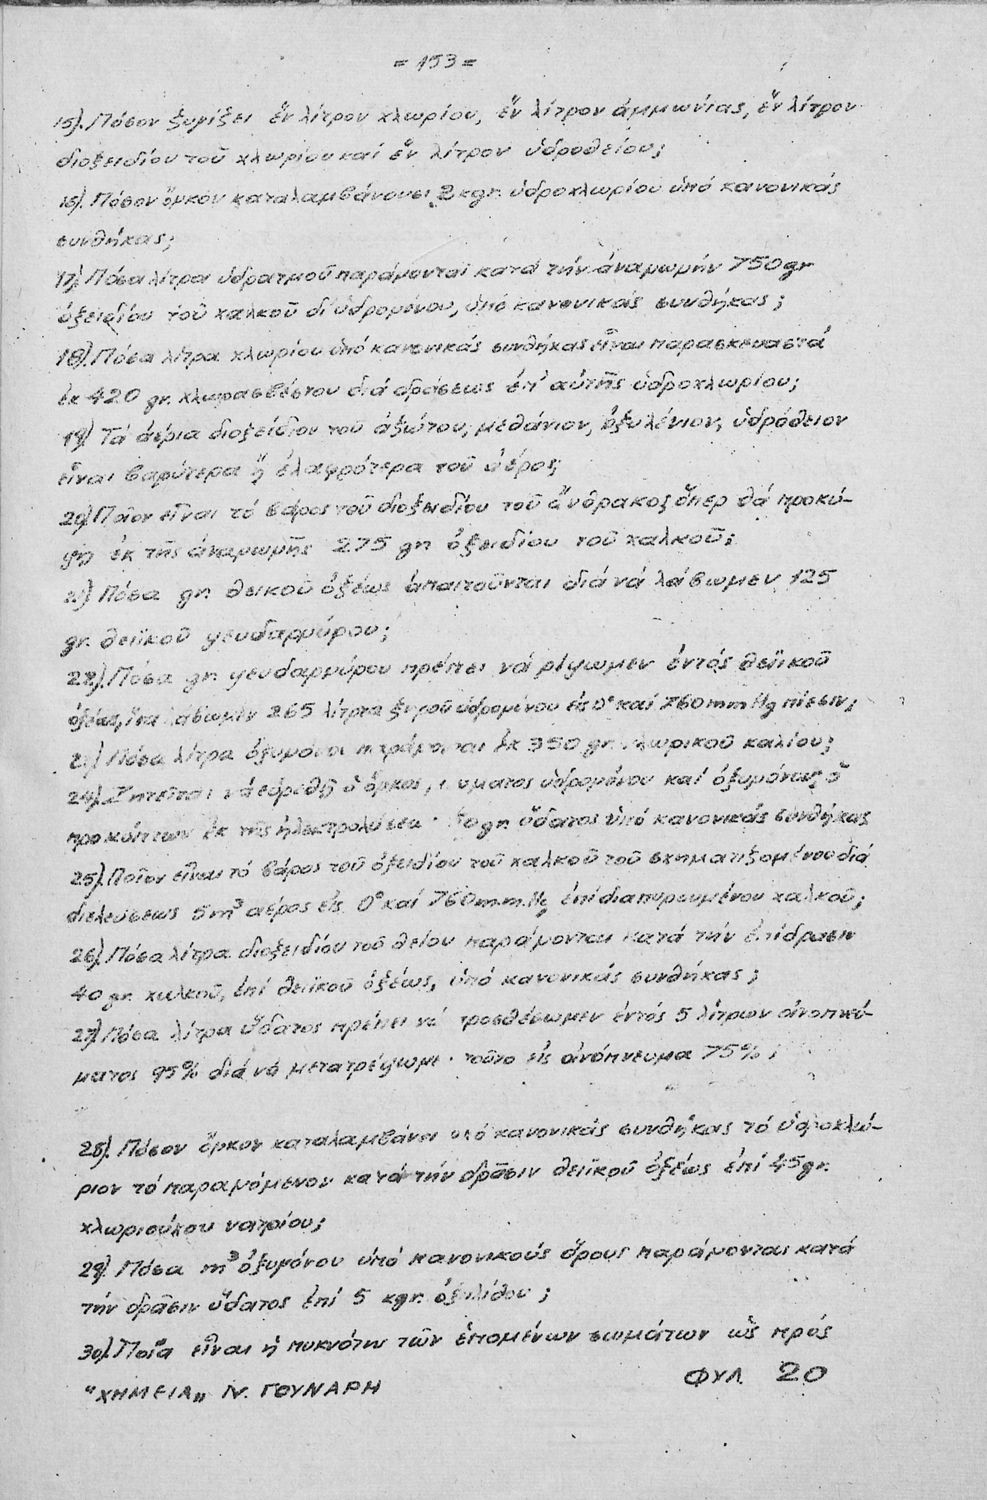 = 153 =
15). Πόσον ζυγίζει ἕν λίτρον χλωρίου, ἕν λίτρον ἀμμωνίας, ἕν λίτρον
διοξειδίου τοῦ χλωρίου καί ἕν λίτρον ὑδροθείου;
16). Πόσον ὄγκον καταλαμβάνουσι 2 κgr. ὑδροχλωρίου ὑπό κανονικάς
συνθήκας;
17). Πόσα λίτρα ὑδρατμοῦ παράγονται κατά τήν ἀναγωγήν 750 gr
ὀξειδίου τοῦ χαλκοῦ δι' ὑδρογόνου, ὑπό κανονικάς συνθήκας;
18). Πόσα λίτρα χλωρίου ὑπό κανονικάς συνθήκας εἶναι παρασκευαστά
ἐκ 420 gr. χλωρασβέστου διά δράσεως ἐπ' αὐτῆς ὑδροχλωρίου;
19). Τά ἀέρια διοξείδιον τοῦ ἀζώτου, μεθάνιον, ὀξυλένιον, ὑδρόθειον
εἶναι βαρύτερα ἤ ἐλαφρότερα τοῦ ἀέρος;
20). Ποῖον εἶναι τό βάρος τοῦ διοξειδίου τοῦ ἄνθρακος ὅπερ θά προκύ-
ψῃ ἐκ τῆς ἀναγωγῆς 275 gr ὀξειδίου τοῦ χαλκοῦ;
21) Πόσα gr. θειικοῦ ὀξέως ἀπαιτοῦνται διά νά λάβωμεν 125
gr. θειϊκοῦ ψευδαργύρου;
22). Πόσα gr. ψευδαργύρου πρέπει νά ρίψωμεν ἐντός θειϊκοῦ
ὀξέως, ἵνα λάβωμεν 265 λίτρα ξηροῦ ὑδρογόνου εἰς 0° καί 760 mm Hg πίεσιν;
Πόσα λίτρα ὀξυγόνου παράγονται ἐκ 350 gr. χλωρικοῦ καλίου;
24). Ζητεῖται νά εὑρεθῇ ὁ ὄγκος, ὑδρογόνου καί ὀξυγόνου, ὁ
προκύπτων ἐκ τῆς ἠλεκτρολύσεω gr. ὕδατος ὑπό κανονικάς συνθήκας
25). Ποῖον εἶναι τό βάρος τοῦ ὀξειδίου τοῦ χαλκοῦ τοῦ σχηματιζομένου διά
διελεύσεως 5 m³ ἀέρος εἰς 0° καί 760 m.m. Hg ἐπί διαπυρουμένου χαλκοῦ;
26). Πόσα λίτρα διοξειδίου τοῦ θείου παράγονται κατά τήν ἐπίδρασιν
40 gr. χαλκοῦ, ἐπί θειϊκοῦ ὀξέως, ὑπό κανονικάς συνθήκας;
27). Πόσα λίτρα ὕδατος πρέπει νά προσθέσωμεν ἐντός 5 λίτρων οἰνοπνεύ-
ματος 95% διά νά μετατρέψωμε τοῦτο εἰς οἰνόπνευμα 75%;
28). Πόσον ὄγκον καταλαμβάνει ὑπό κανονικάς συνθήκας τό ὑδροχλώ-
ριον τό παραγόμενον κατά τήν δρᾶσιν θειϊκοῦ ὀξέως ἐπί 45 gr.
χλωριούχου νατρίου;
29). Πόσα m³ ὀξυγόνου ὑπό κανονικούς ὅρους παράγονται κατά
τήν δρᾶσιν ὕδατος ἐπί 5 κgr. ὀξυλίθου;
30). Ποία εἶναι ἡ πυκνότης τῶν ἑπομένων σωμάτων ὡς πρός
"ΧΗΜΕΙΑ" ΙΝ. ΓΟΥΝΑΡΗ ΦΥΛ. 20